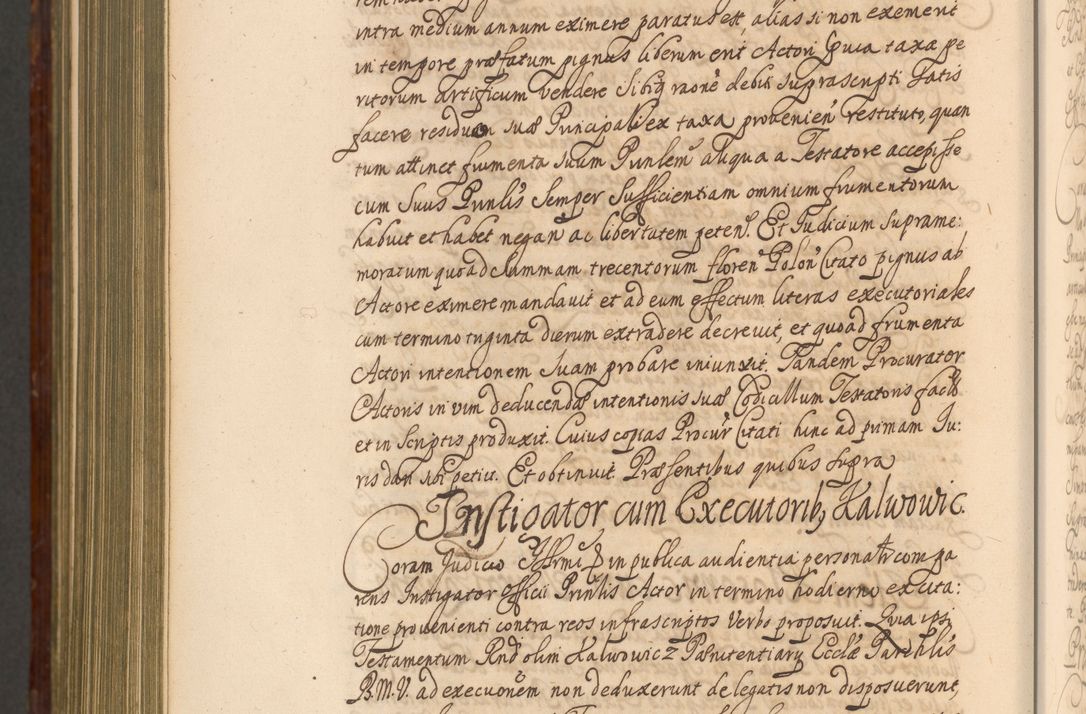 intra medium annum eximere paratus est, alias si non exemerit
in tempore præfatum pignus liberum erit Actori Quia taxa pe
ritorum artificum vendere sibiq raone debiti suprascripti satis
facere residuum suæ Principali ex taxa provenien restituto, quan
tum attinet frumenta suum Prinlem aliqua a Testatore accepisse
cum Suus Prinlis Semper Sufficientiam omnium frumentorum
habuit et habet negan ac libertatem peten. Et Judicium suprame:
moratum quoad Summam trecentorum floren Polon Citato pignus ab
Actore eximere mandavit et ad eum effectum literas executoriales
cum termino triginta dierum extradere decrevit, et quoad frumenta
Actori intentionem suam probare iniunxit. Tandem Procurator
Actoris in vim deducendæ intentionis suæ Codicillum Testatoris
et in Scriptis produxit. Cuius copias Procur Citati hinc ad primam Ju:
ris dari sibi petiit. Et obtinuit. Præsentibus quibus supra
Instigator cum Executorib, Kalwowic.
Coram Judicio in publica audientia personalr compa
rens Instigator Officii Prinlis Actor in termino hodierno ex cita:
tione provenienti contra reos infrascriptos Verbo proposuit. Quia ipsi
Testamentum Rnd olim Kalwowicz Pænitentiary Ecclæ Parchlis
B.M.V. ad execuonem non deduxerunt de legatis non disposuerunt,